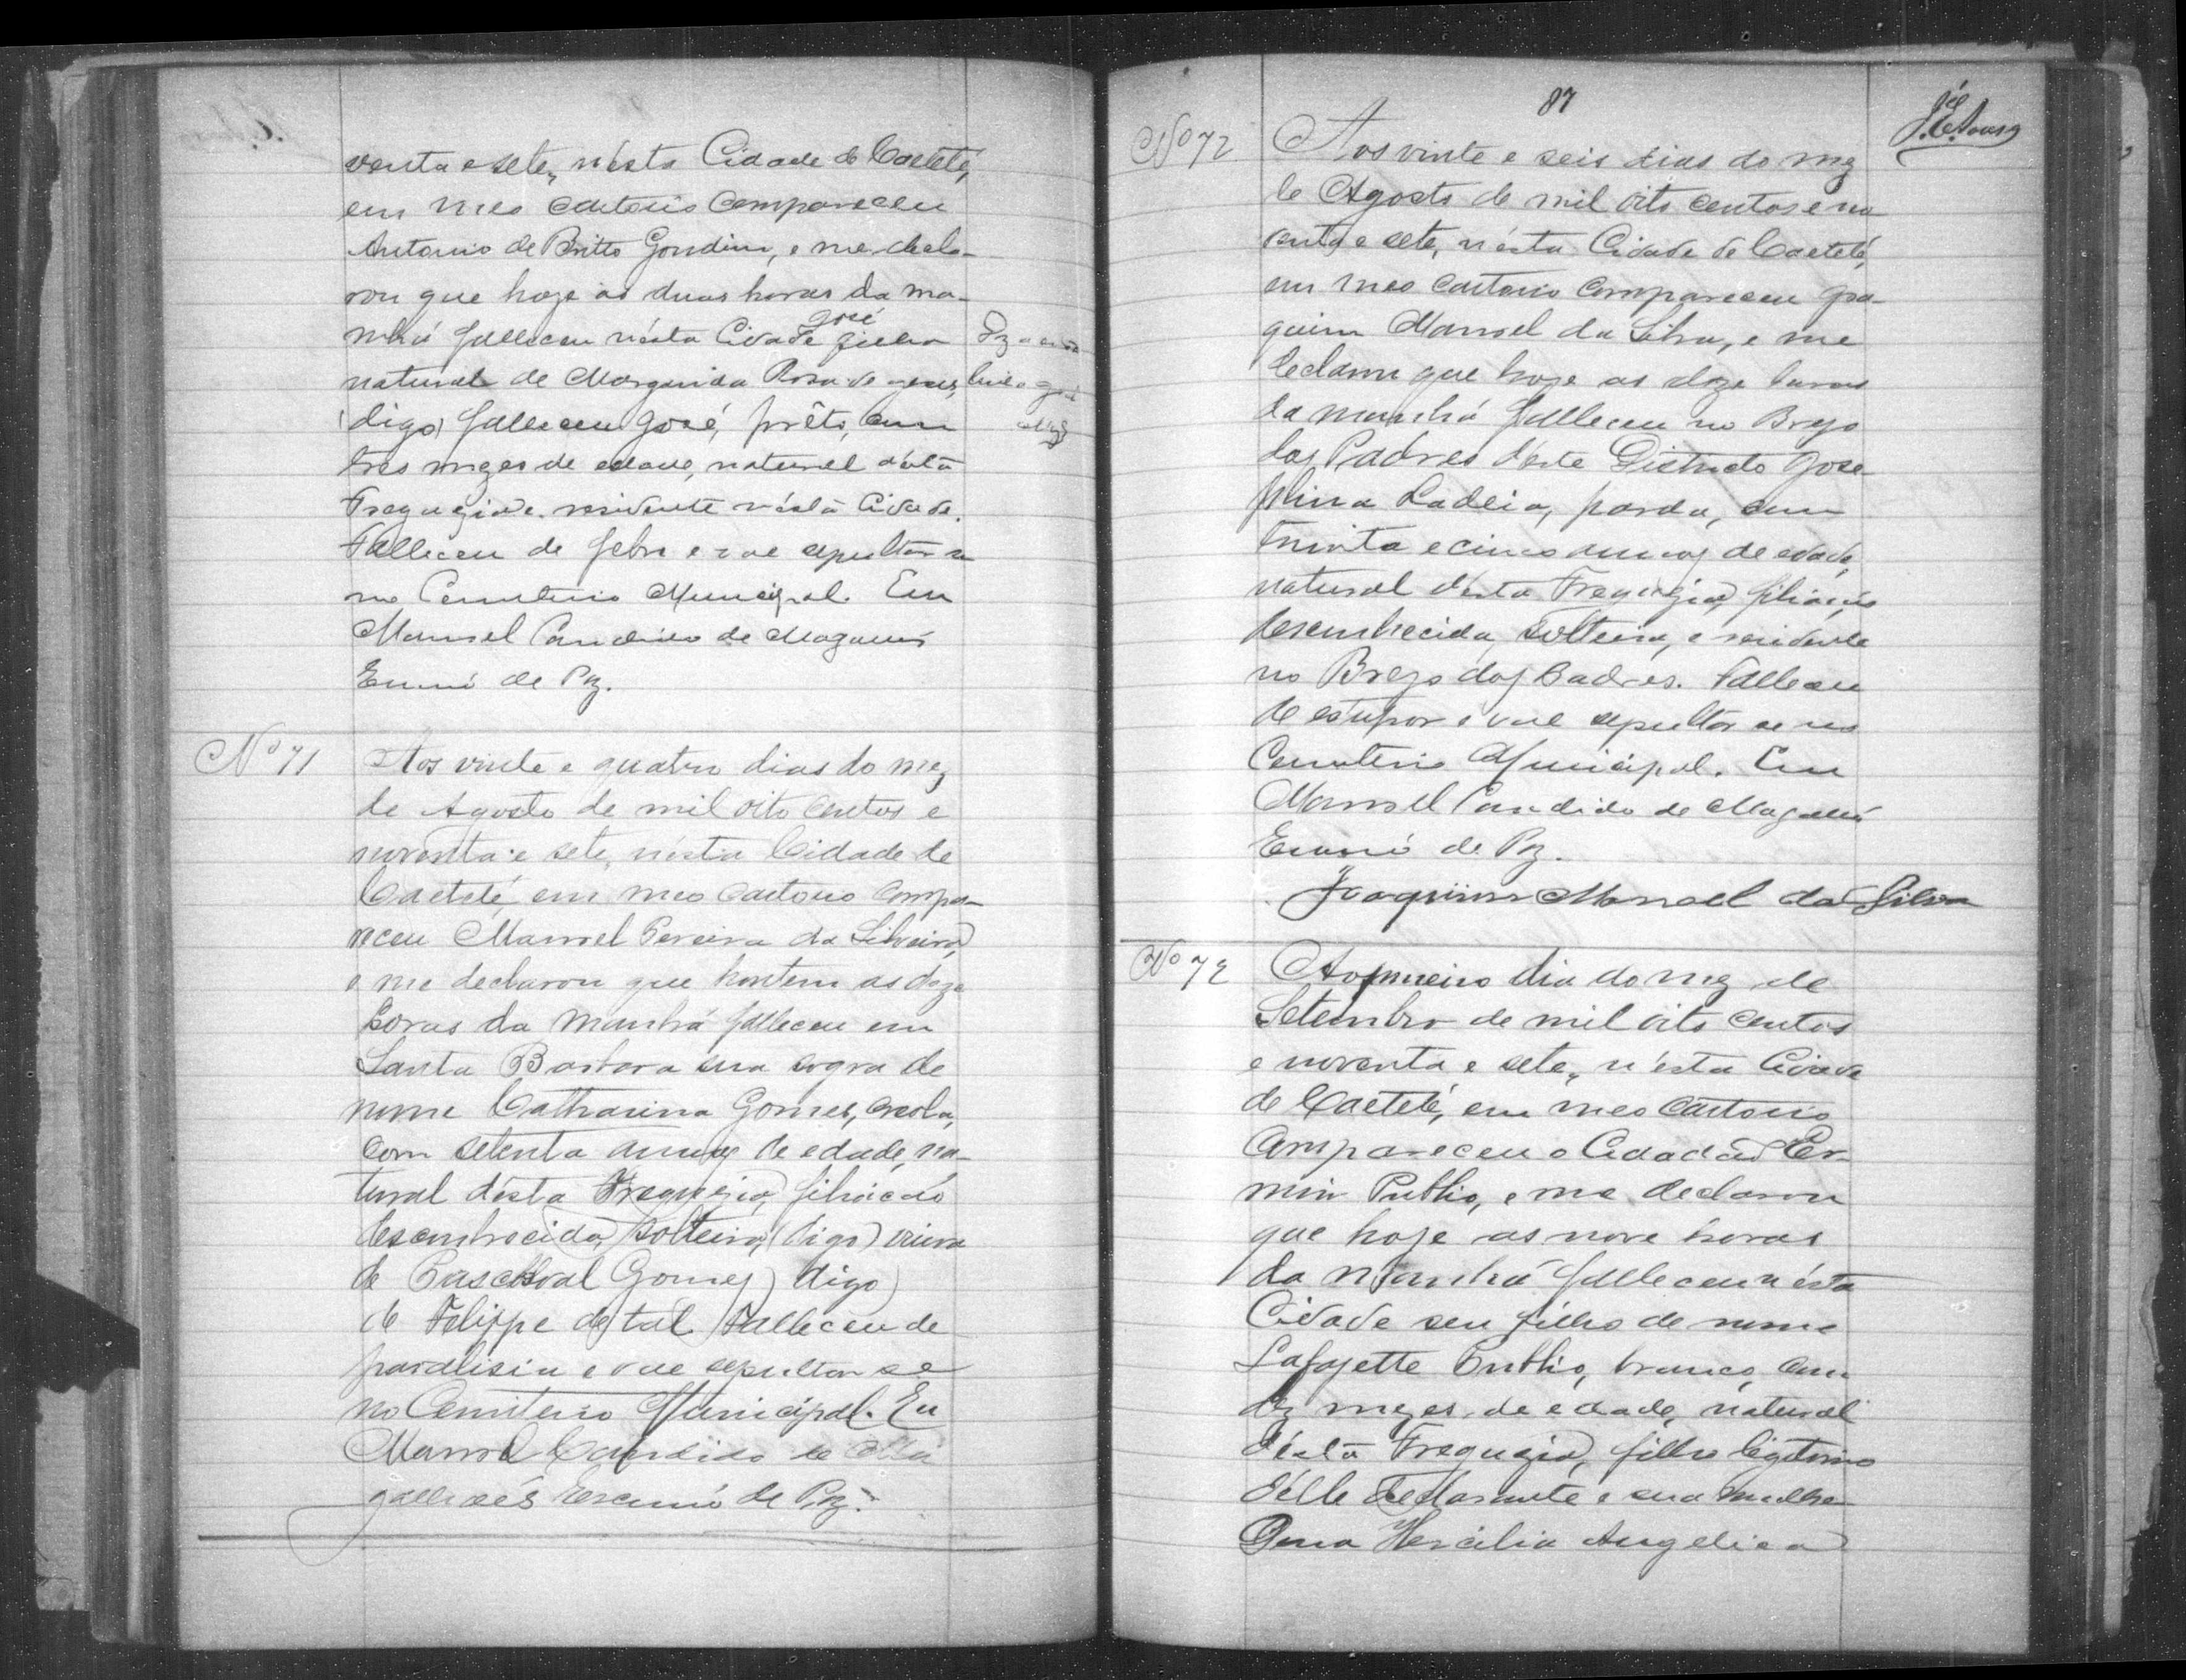 venta e sete, nésta Cidade de Caeteté,
em meo Cartorio Compareceu
Antonio de Britto Gondim, e me decla-
rou que hoje as duas horas da ma-
nhã falleceu nésta Cidade José filho
natural de Margarida Rosa de Jesus,
(digo) falleceu José, prêto, com
tres mezes de edade, natural désta
Freguezia e residente nésta Cidade.
Falleceu de febre e vae sepultar se
no Cemiterio Municipal. Eu
Manoel Candido de Magalhães
Escrivão de Paz.
Nº 71
Aos vinte e quatro dias do mez
de Agosto de mil oito centos e
noventa e sete, nésta Cidade de
Caeteté, em meo Cartorio Compa-
receu Manoel Pereira da Silveira,
e me declarou que hontem as doze
horas da manhã falleceu em
Santa Barbara sua sogra de
nome Catharina Gomes, creola,
com setenta annos de edade, na-
tural désta Freguezia, filiação
desconhecida, solteira, (digo) viuva
de Paschoal Gomes) digo)
de Felippe de tal. Falleceu de
paralisia e vae sepultar se
no Cemiterio Municipal. Eu
Manoel Candido de Ma
galhães Escrivão de Paz.
87
Nº 72
Aos vinte e seis dias do mez
de Agosto de mil oito centos e no
venta e sete, nésta Cidade de Caeteté,
em meo Cartorio Compareceu Joa-
quim Manoel da Silva, e me
declarou que hoje as doze horas
da manhã falleceu no Brejo
dos Padres déste Districto Jose
phina Ladeia, parda, com
trinta e cinco annos de edade,
natural désta Freguezia, filiação
desconhecida, solteira, e residente
no Brejo dos Padres. Falleceu
de estupor e vae sepultar se no
Cemiterio Municipal. Eu
Manoel Candido de Magalhães
Escrivão de Paz.
Joaquim Manoel da Silva
Nº 72
Ao primeiro dia do mez de
Setembro de mil oito centos
e noventa e sete, nésta Cidade
de Caeteté, em meo Cartorio
Compareceu o Cidadão Her-
minio Publio, e me declarou
que hoje as nove horas
da manhã falleceu nésta
Cidade seu filho de nome
Lafayette Publio, branco, com
dez mezes de edade, natural
désta Freguezia, filho legitimo
délle declarante e sua mulher
Dona Hercilia Angelica